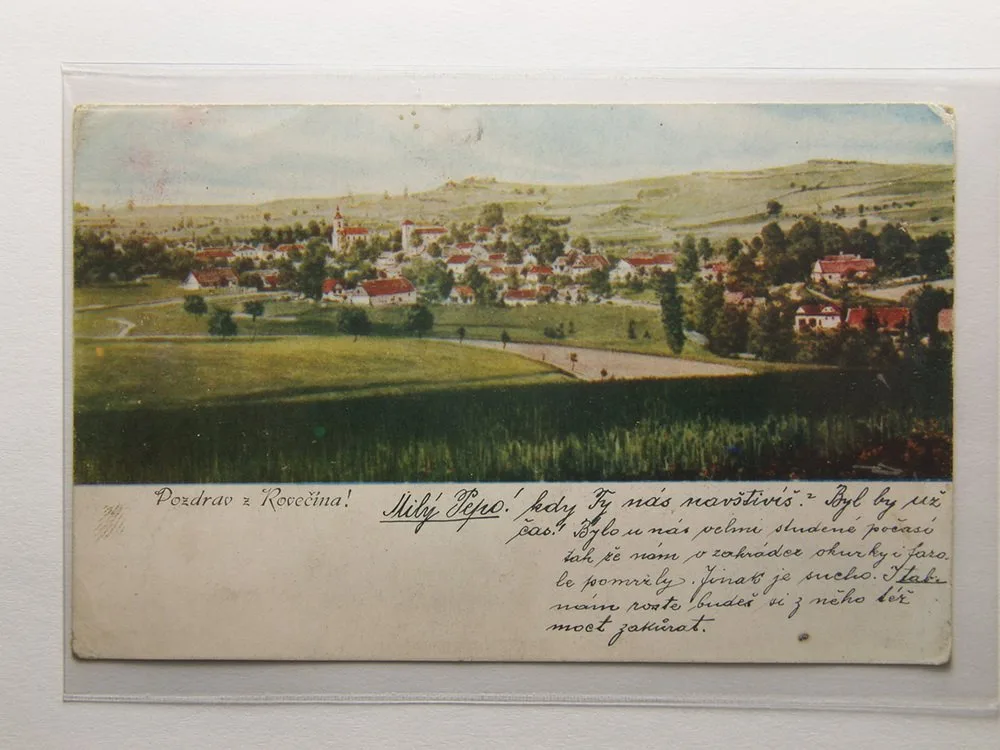 Pozdrav z Rovečína!
Milý Pepo! kdy Ty nás navštívíš? Byl by už
čas! Bylo u nás velmi studené počasí
tak že nám v zahrádce okurky i fazo
le pomrzly. Jinak je sucho. I tab.
nám roste budeš si z něho též
moct zakůrat.